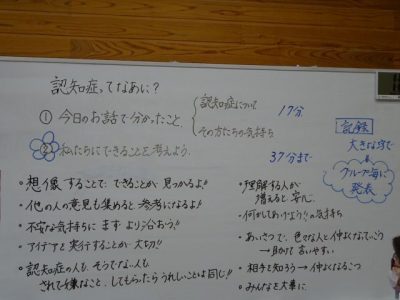 認知症ってなあに？
① 今日のお話で分かったこと
認知症について
その方たちの気持ち
17分
② 私たちにできることを考えよう
37分まで
記録
大きな字で
グループ毎に
発表
• 想像することで、できることが見つかるよ!!
• 他の人の意見も集めると、参考になるよ!!
• 不安な気持ちに、まずより沿おう!!
• アイデアを実行することが大切!!
• 認知症の人も、そうでない人も
されて嫌なこと、してもらったらうれしいことは同じ!!
• 理解する人が
増えると安心
• 何かしてあげよう!!の気持ち
• あいさつで、色々な人と仲よくなっていこう
→助けて 言いやすい
• 相手を知ろう→仲よくなるこつ
• みんなを大事に